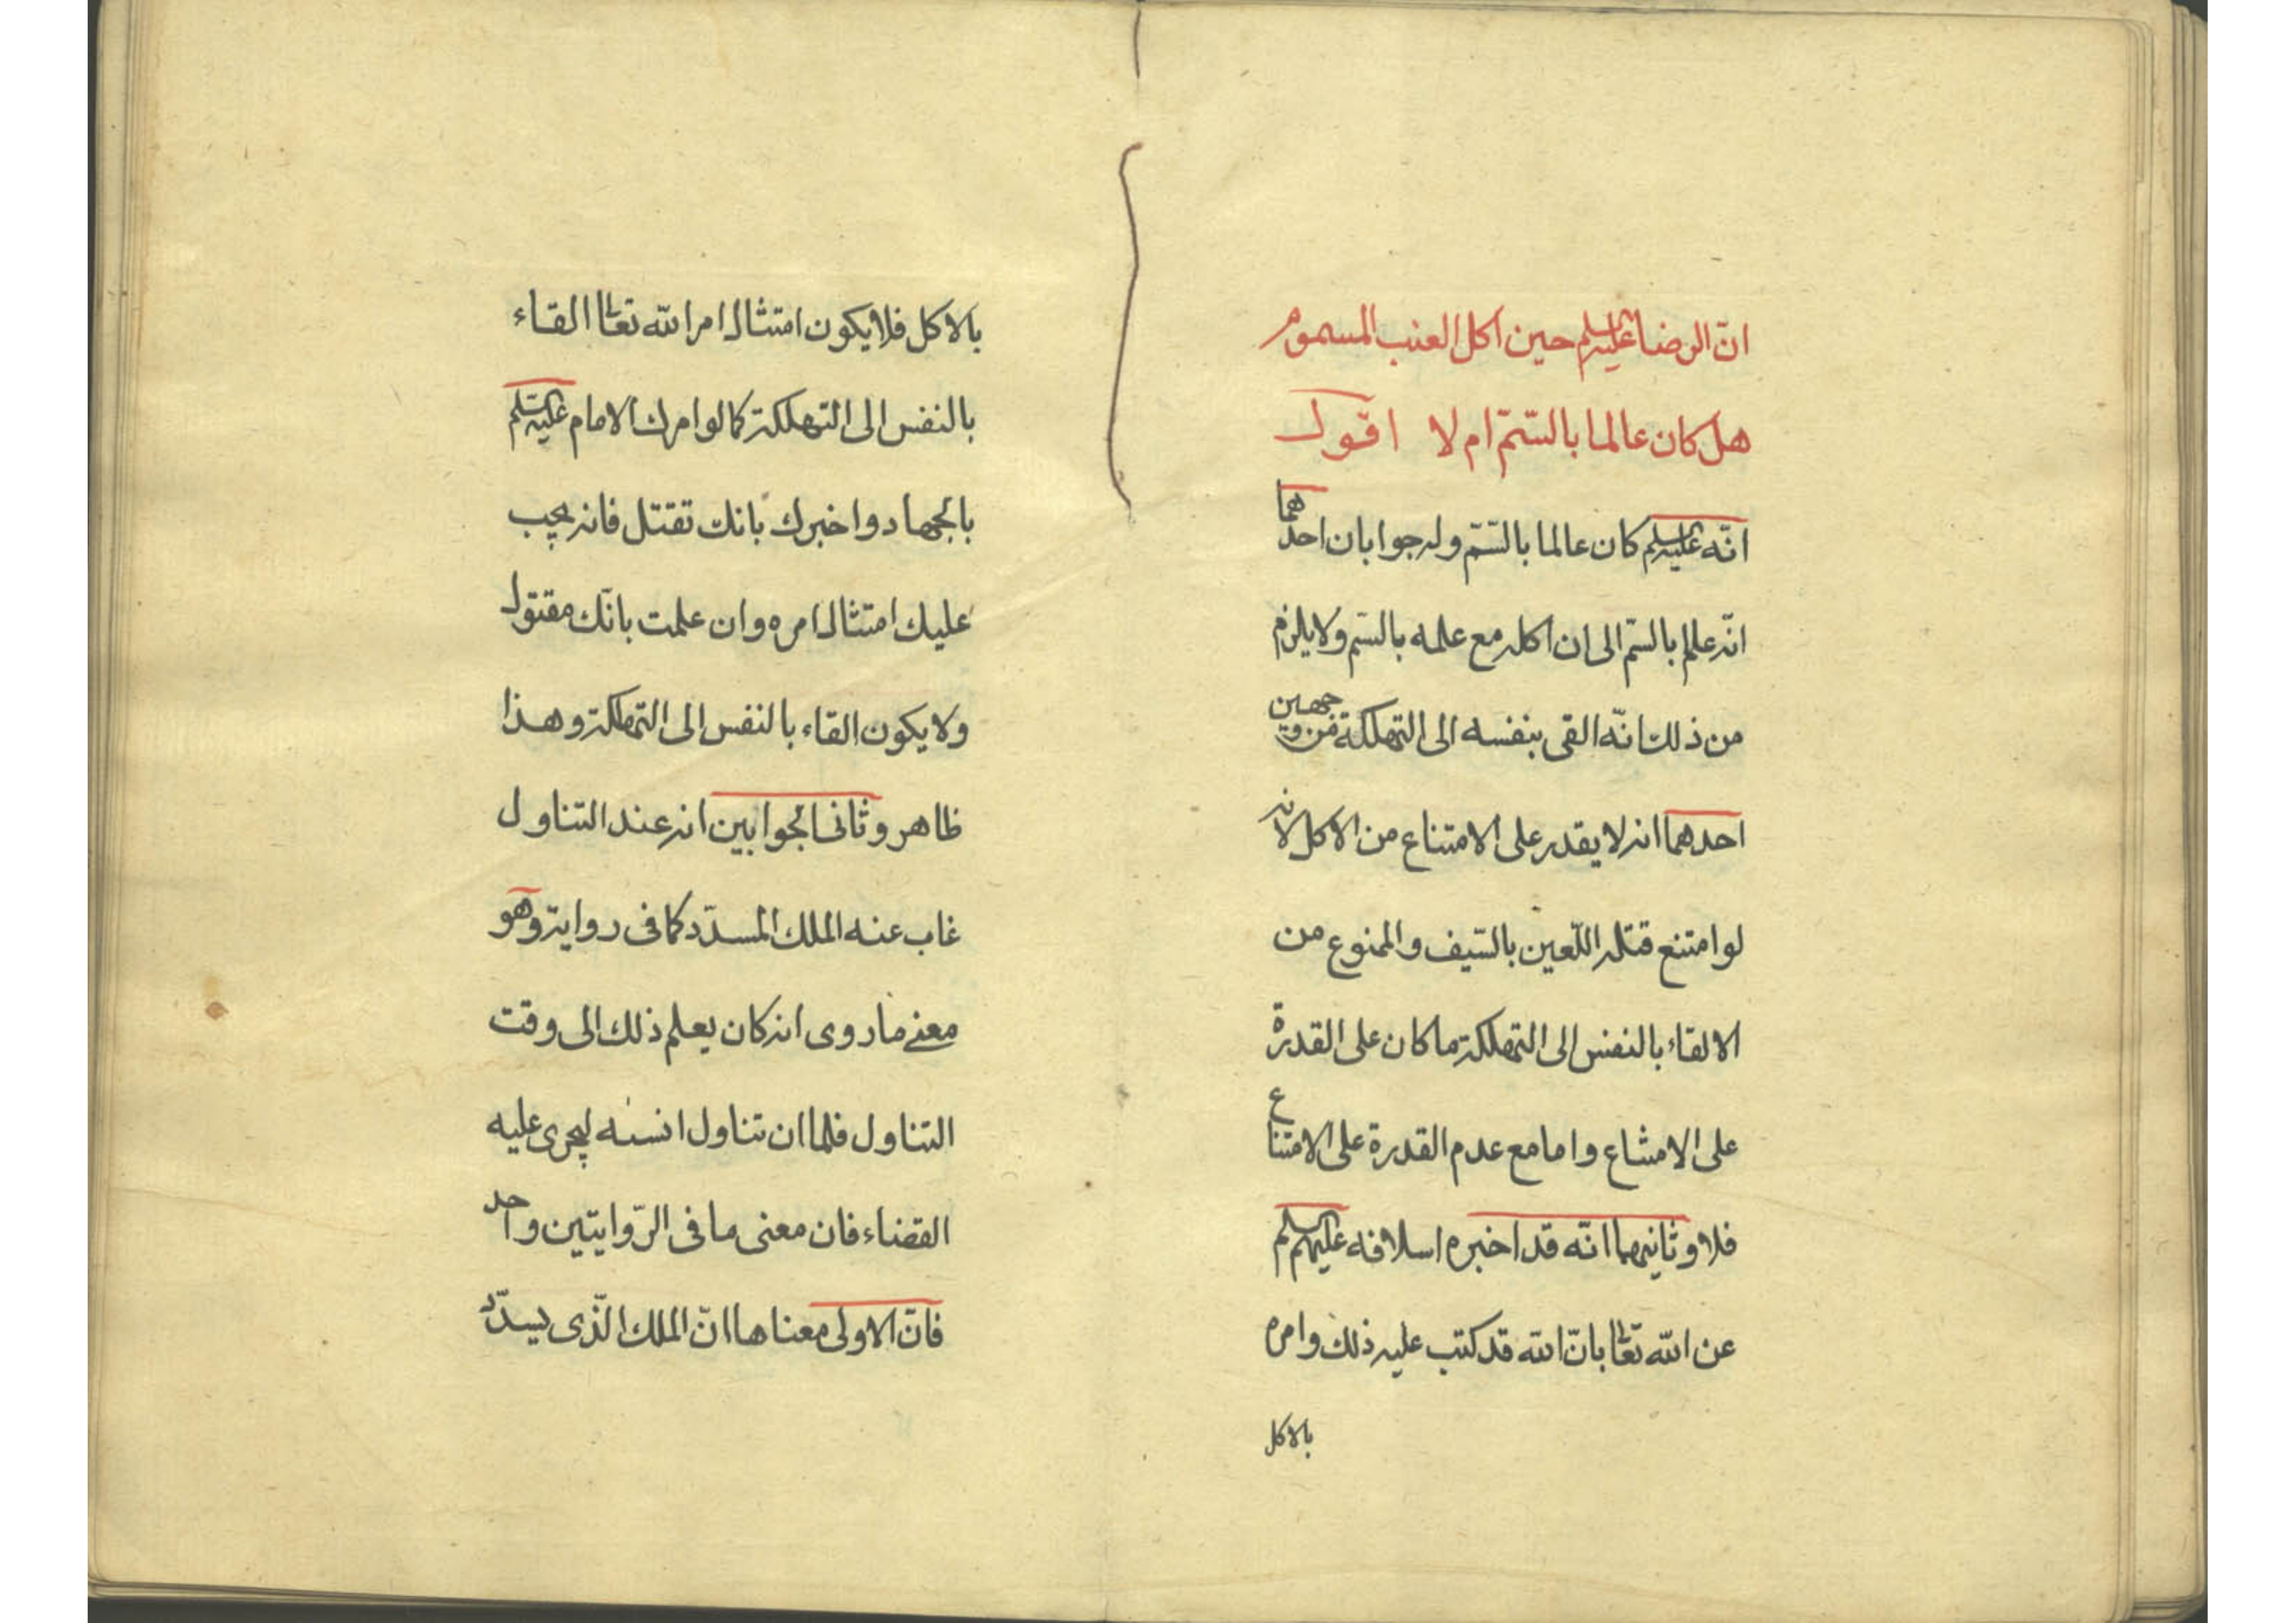 انّ الرضا عليه السلم حين اكل العنب المسموم
هل كان عالما بالسّمّ ام لا اقول
انّه عليه السلم كان عالما بالسّمّ وله جوابان احدهما
انّه علم بالسّمّ الى ان اكله مع علمه بالسّم ولا يلزم
من ذلك انّه القى بنفسه الى التهلكة فمن وجهين
احدهما انه لا يقدر على الامتناع من الاكل لانه
لو امتنع قتله اللّعين بالسّيف والممنوع من
الالقاء بالنفس الى التهلكة ما كان على القدرة
على الامتناع واما مع عدم القدرة على الامتناع
فلا وثانيهما انّه قد اخبره اسلافه عليهم السلم
عن الله تعالى بانّ الله قد كتب عليه ذلك وامره
بالاكل
بالاكل فلا يكون امتثال امر الله تعالى القاء
بالنفس الى التهلكة كما لو امرك الامام عليه السلم
بالجهاد واخبرك بانك تقتل فانه يجب
عليك امتثال امره وان علمت بانّك مقتول
ولا يكون القاء بالنفس الى التهلكة وهذا
ظاهر وثانى الجوابين انه عند التناول
غاب عنه الملك المسدّد كما فى رواية وهو
معنى ما روى انه كان يعلم ذلك الى وقت
التناول فلما ان تناول انسه ليجرى عليه
القضاء فان معنى ما فى الرّوايتين واحد
فانّ الاولى معناها انّ الملك الّذى يسدّد